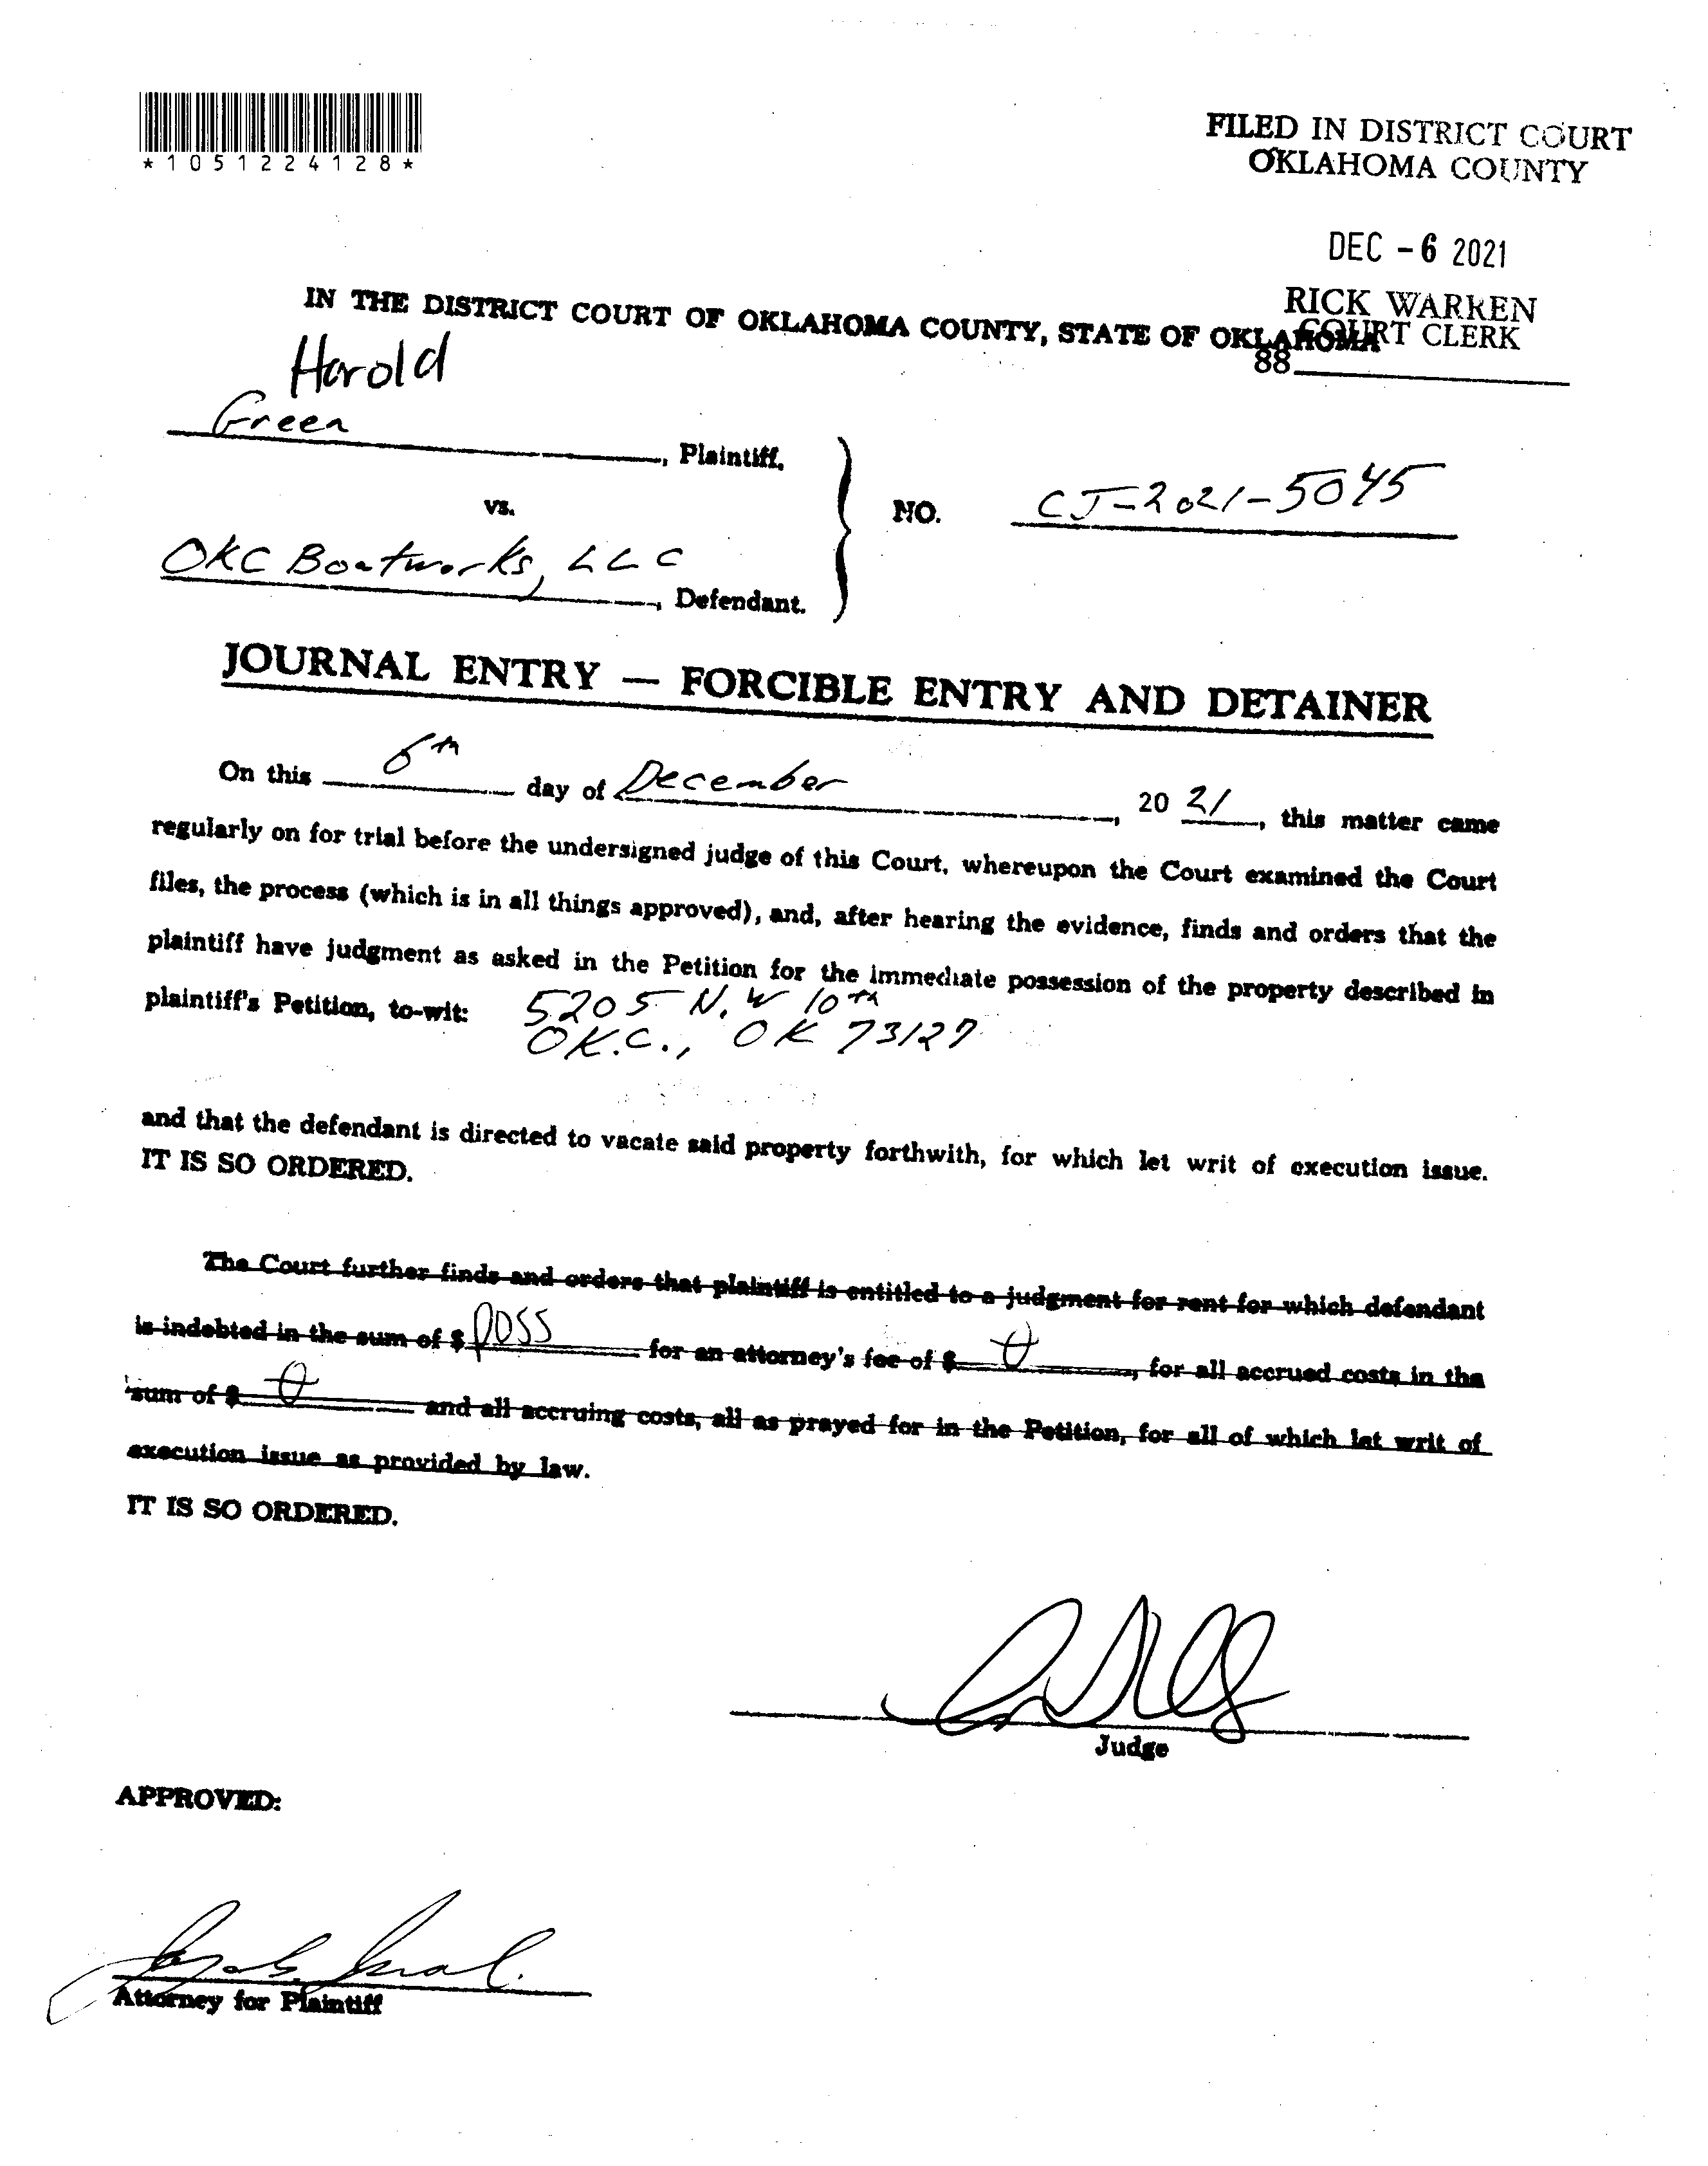 *1051224128*
FILED IN DISTRICT COURT
OKLAHOMA COUNTY
DEC -6 2021
RICK WARREN
COURT CLERK
88
IN THE DISTRICT COURT OF OKLAHOMA COUNTY, STATE OF OKLAHOMA
Harold
Green
, Plaintiff,
vs.
NO. CJ-2021-5045
OKC Boatworks, LLC
, Defendant.
JOURNAL ENTRY — FORCIBLE ENTRY AND DETAINER
On this 6th day of December, 2021, this matter came
regularly on for trial before the undersigned judge of this Court, whereupon the Court examined the Court
files, the process (which is in all things approved), and, after hearing the evidence, finds and orders that the
plaintiff have judgment as asked in the Petition for the immediate possession of the property described in
plaintiff's Petition, to-wit: 5205 N.W 10th
OK.C., OK 73127
and that the defendant is directed to vacate said property forthwith, for which let writ of execution issue.
IT IS SO ORDERED.
The Court further finds and orders that plaintiff is entitled to a judgment for rent for which defendant
is indebted in the sum of $ poss for an attorney's fee of $ 0, for all accrued costs in the
sum of $ 0 and all accruing costs, all as prayed for in the Petition, for all of which let writ of
execution issue as provided by law.
IT IS SO ORDERED.
Judge
APPROVED:
Attorney for Plaintiff